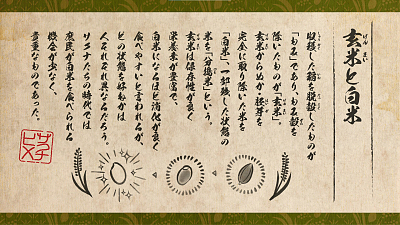 げんまい
玄米と白米
収穫した稲を脱穀したものが
「もみ」であり、もみ殻を
除いたものが「玄米」。
玄米からぬか、胚芽を
完全に取り除いた米を
「白米」、一部残した状態の
米を「分搗米」という。
玄米は保存性が良く
栄養素が豊富で、
白米になるほど消化が良く
食べやすいと言われるが、
どの状態を好むかは
人それぞれ異なるだろう。
サクナたちの時代では
庶民が白米を食べられる
機会が少なく、
貴重なものであった。
サクナヒメ